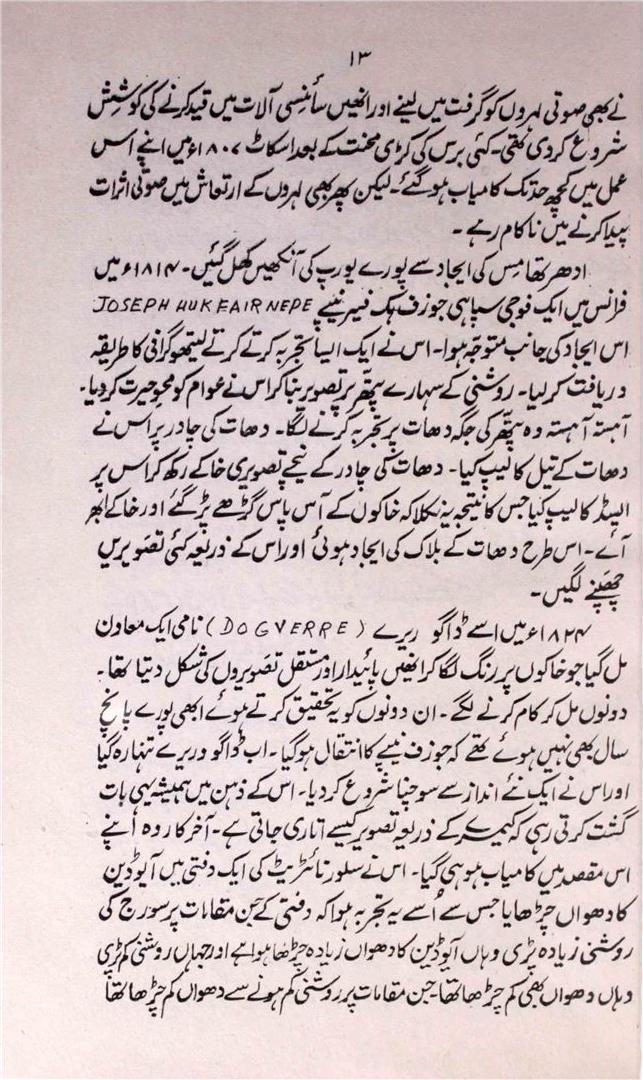 ۱۳
نے بھی صوتی لہروں کو گرفت میں لینے اور انھیں سائنسی آلات میں قید کرنے کی کوشش
شروع کر دی تھی۔ کئی برس کی کڑی محنت کے بعد اسکاٹ ۱۸۰۷ء میں اپنے اس
عمل میں کچھ حد تک کامیاب ہو گئے۔ لیکن پھر بھی لہروں کے ارتعاش میں صوتی اثرات
پیدا کرنے میں ناکام رہے۔
ادھر تھامس کی ایجاد سے پورے یورپ کی آنکھیں کھل گئیں۔ ۱۸۱۴ء میں
فرانس میں ایک فوجی سپاہی جوزف ہک فیر نیپے JOSEPH HUK FAIR NEPE
اس ایجاد کی جانب متوجہ ہوا۔ اس نے ایک ایسا تجربہ کرتے کرتے لیتھوگرافی کا طریقہ
دریافت کر لیا۔ روشنی کے سہارے پتھر پر تصویر بنا کر اس نے عوام کو محوِ حیرت کر دیا۔
آہستہ آہستہ وہ پتھر کی جگہ دھات پر تجربہ کرنے لگا۔ دھات کی چادر پر اس نے
دھات کے تیل کا لیپ کیا۔ دھات کی چادر کے نیچے تصویری خاکے رکھ کر اس پر
ایسڈ کا لیپ کیا جس کا نتیجہ یہ نکلا کہ خاکوں کے آس پاس گڑھے پڑ گئے اور خاکے ابھر
آئے۔ اس طرح دھات کے بلاک کی ایجاد ہوئی اور اس کے ذریعہ کئی تصویریں
چھپنے لگیں۔
۱۸۲۴ء میں اسے ڈاگو ریرے (DOGVERRE) نامی ایک معاون
مل گیا جو خاکوں پر رنگ لگا کر انھیں پائیدار اور مستقل تصویروں کی شکل دیتا تھا۔
دونوں مل کر کام کرنے لگے۔ ان دونوں کو یہ تحقیق کرتے ہوئے ابھی پورے پانچ
سال بھی نہیں ہوئے تھے کہ جوزف نیپے کا انتقال ہو گیا۔ اب ڈاگو وریرے تنہا رہ گیا
اور اس نے ایک نئے انداز سے سوچنا شروع کر دیا۔ اس کے ذہن میں ہمیشہ یہی بات
گشت کرتی رہی کہ کیمرے کے ذریعہ تصویر کیسے اتاری جاتی ہے۔ آخر کار وہ اپنے
اس مقصد میں کامیاب ہو ہی گیا۔ اس نے سلور نائٹریٹ کی ایک دفتی میں آیوڈین
کا دھواں چڑھایا جس سے اُسے یہ تجربہ ہوا کہ دفتی کے جن مقامات پر سورج کی
روشنی زیادہ پڑی وہاں آیوڈین کا دھواں زیادہ چڑھا ہوا ہے اور جہاں روشنی کم پڑی
وہاں دھواں بھی کم چڑھا تھا۔ جن مقامات پر روشنی کم ہونے سے دھواں کم چڑھا تھا